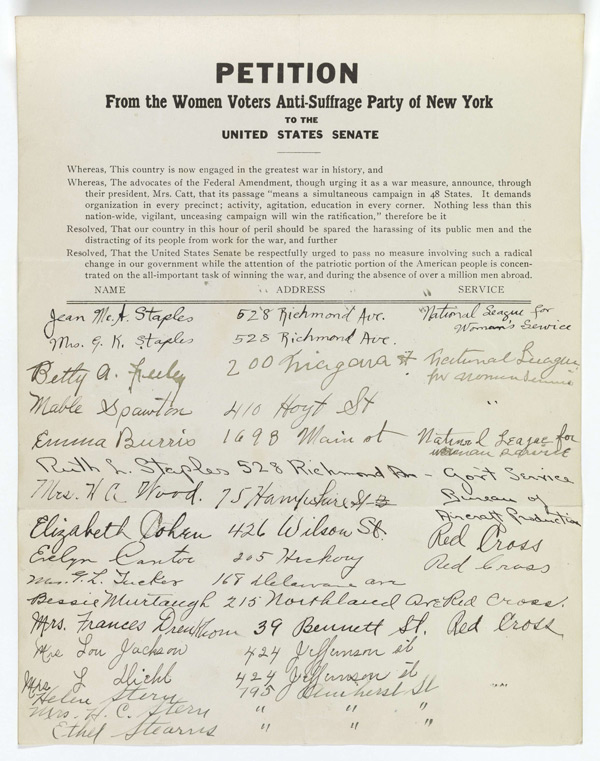 PETITION
From the Women Voters Anti-Suffrage Party of New York
TO THE
UNITED STATES SENATE
Whereas, This country is now engaged in the greatest war in history, and
Whereas, The advocates of the Federal Amendment, though urging it as a war measure, announce, through
their president, Mrs. Catt, that its passage "means a simultaneous campaign in 48 States. It demands
organization in every precinct; activity, agitation, education in every corner. Nothing less than this
nation-wide, vigilant, unceasing campaign will win the ratification," therefore be it
Resolved, That our country in this hour of peril should be spared the harassing of its public men and the
distracting of its people from work for the war, and further
Resolved, That the United States Senate be respectfully urged to pass no measure involving such a radical
change in our government while the attention of the patriotic portion of the American people is concen-
trated on the all-important task of winning the war, and during the absence of over a million men abroad.
NAME ADDRESS SERVICE
Jean Mc.A. Staples 528 Richmond Ave. National League for
Woman's Service
Mrs. G. K. Staples 528 Richmond Ave.
Betty A. 200 Niagara St National League
for Woman Service
Mable Spawton 410 Hoyt St "
Emma Burris 1698 Main st National League for
woman service
Ruth L. Staples 528 Richmond Av - Gov't Service
Mrs. H. A. Wood. 75 Hampshire St Bureau of
Aircraft Production
Elizabeth Cohen 426 Wilson St. Red Cross
Evelyn Cantor 205 Hickory Red Cross
Mrs. F. L. Tucker 168 Delaware ave
Bessie Murtaugh 215 Northland Ave Red Cross.
Mrs. Frances Drewthorn 39 Bennett St. Red Cross
Mrs Lou Jackson 424 Jefferson st
Mrs L Diehl 424 Jefferson st
Helen Stern 795 Amherst St "
Mrs. H. C. Stern " " "
Ethel Stearns " " "